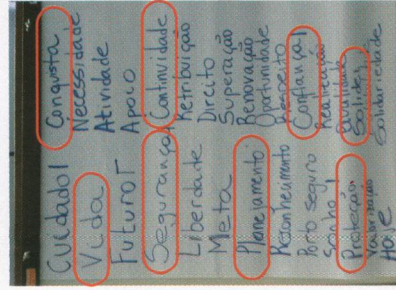 Cuidado!
Vida
Futuro!
Segurança!
Liberdade
Meta
Planejamento
Reconhecimento
Porto Seguro
Sonho!
Proteção
Valorização
Hoje
Conquista
Necessidade
Atividade
Apoio
Continuidade
Retribuição
Direito
Superação
Renovação
Oportunidade
Respeito
Confiança!
Realização
Solidez
Solidariedade